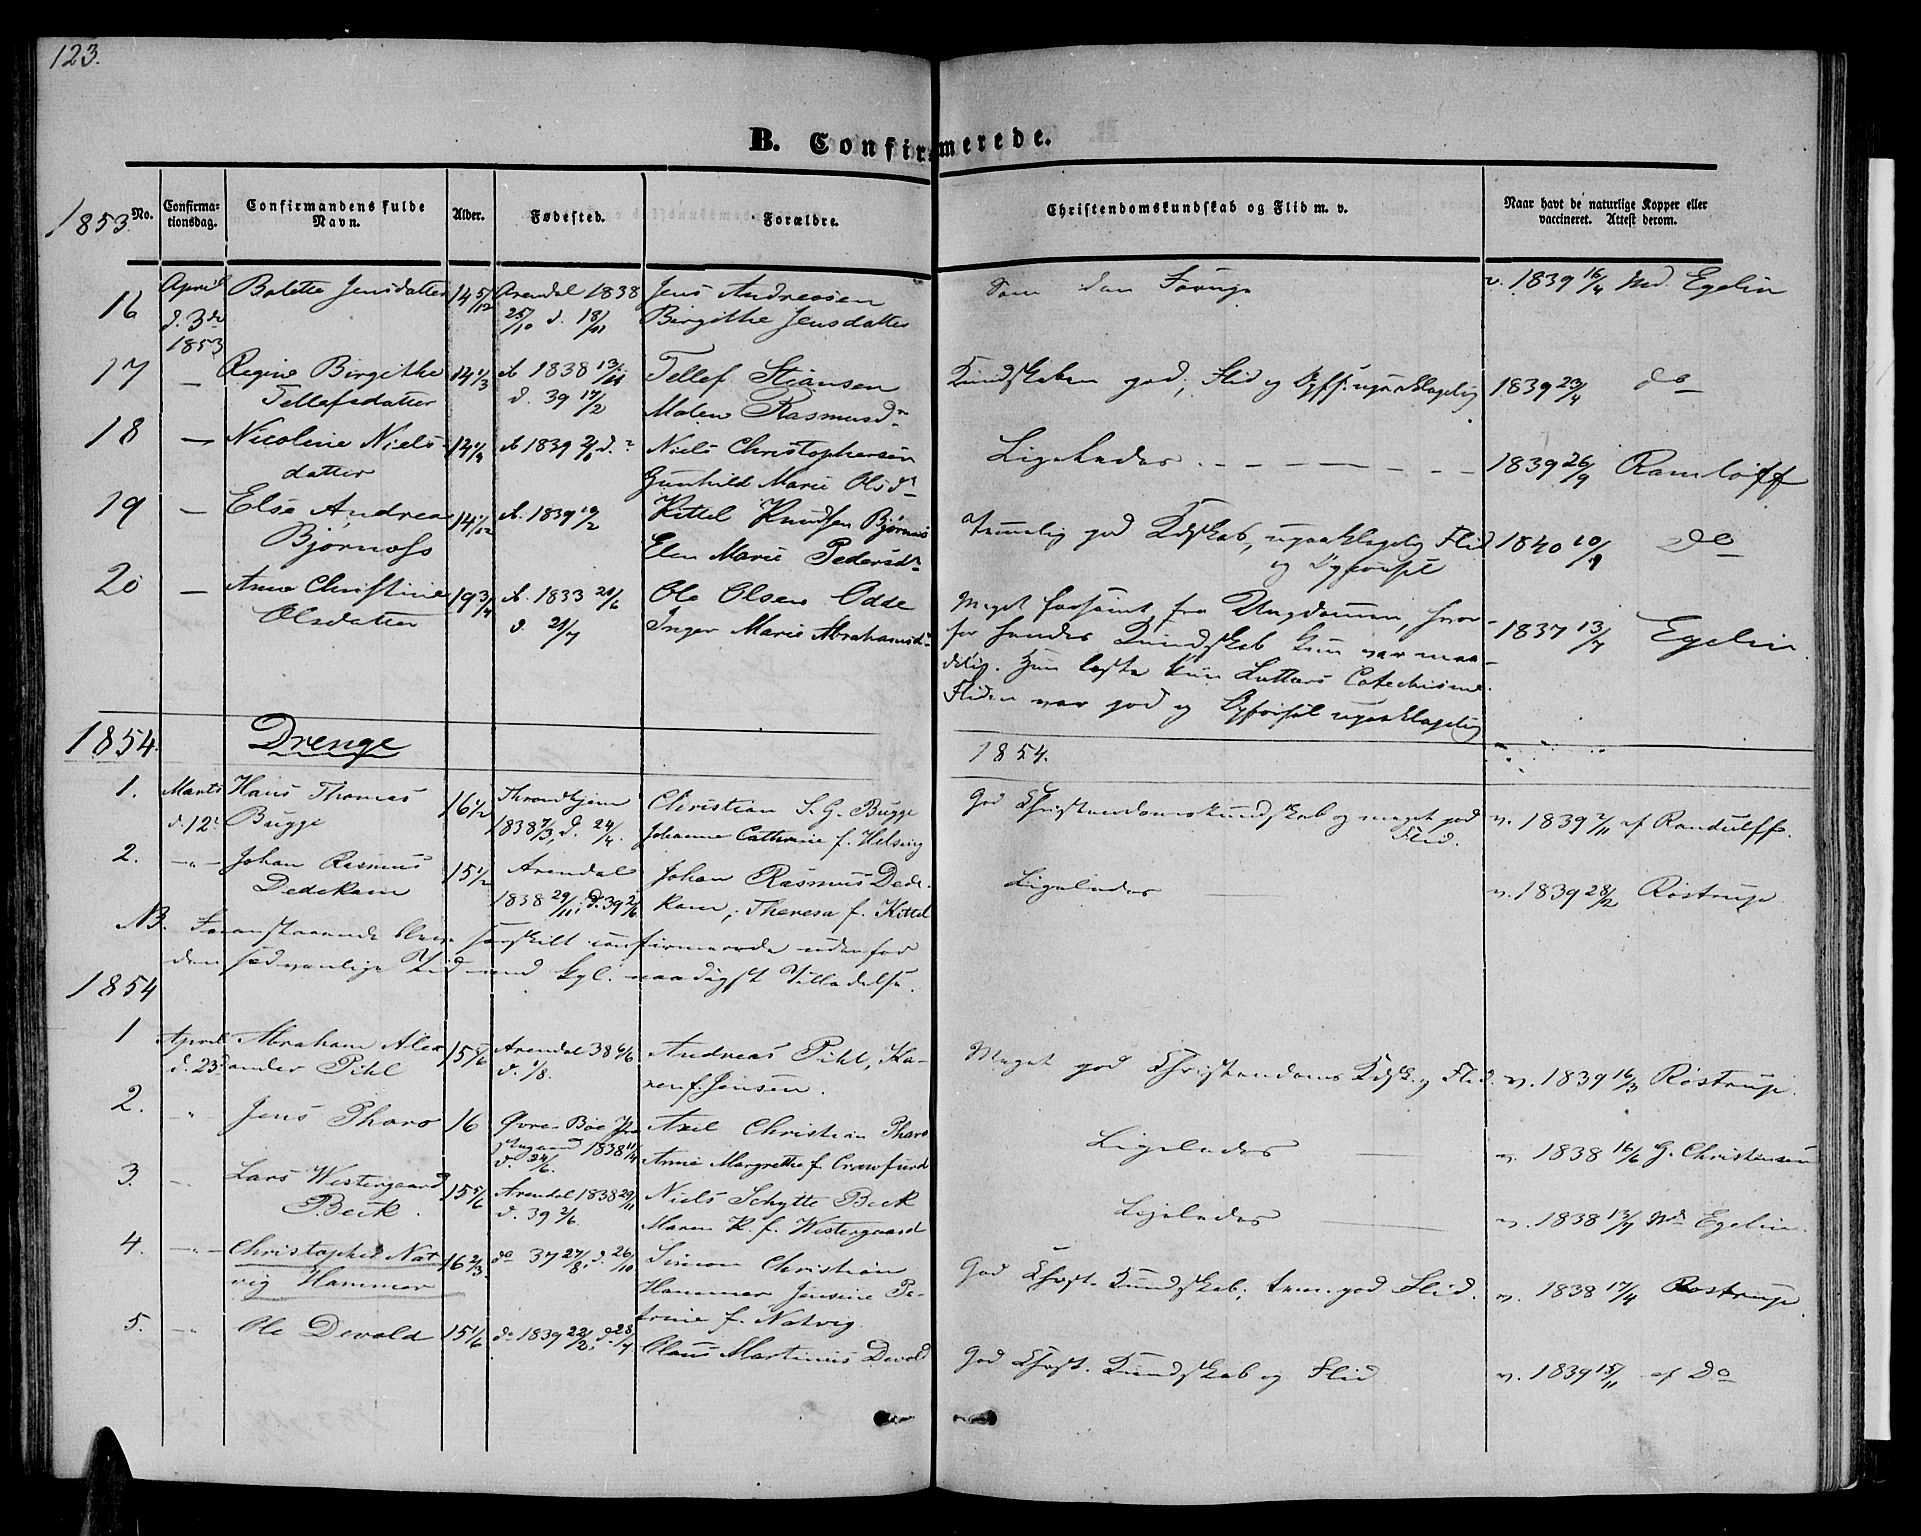 123.
B. Confirmerede.
1853
No.
Confirmationsdag.
Confirmandens fulde Navn.
Alder.
Fødested.
Forældre.
Christendomskundskab og Flid m. v.
Naar havt de naturlige Kopper eller vaccineret. Attest derom.
16 April d. 3de 1853 Bolette Jensdatter 14 5/12 Arendal 1838 25/10 d. 18/11 Jens Andreasen Birgithe Jensdatter Som den Forrige v. 1839 16/4 Md. Egelin
17 — Regine Birgithe Tellefsdatter 14 1/3 A. 1838 13/11 d. 39 17/2 Tellef Stiansen Malen Rasmusdr Kundskaben god; Flid og Opf. upaaklagelig 1839 23/4 do
18 — Nicoline Nielsdatter 14 1/4 A. 1839 d. ? Niels Christophersen Gunhild Marie Olsdr Ligeledes 1839 26/9 Ramløff
19 — Else Andrea Bjørnass 14 1/12 A. 1839 Kittel Knudsen Bjørnaas Elen Marie Pedersdr Temmelig god Kdskab, upaaklagelig Flid og Opførsel 1840 10/9 Do
20 — Anne Christine Olsdatter 19 3/4 A. 1833 d. 21/7 Ole Olsen Odde Inger Marie Abrahamsdr Meget forsømt fra Ungdommen, hvorfor hendes Kundskab kun var maadelig. Hun læste kun Luthers Catechisme. Fliden var god og Opførsel upaaklagelig 1837 13/7 Egelin.
1854. Drenge 1854.
1. Marts d. 12te Hans Thomas Bugge 16 1/2 Throndhjem 1838 7/3, d. 24/4. Christian S. G. Bugge Johanne Cathrine f. Helsing God Christendomskundskab og meget god Flid. v. 1839 af Randulff.
2. —"— Johan Rasmus Dedekam 15 1/2 Arendal 1838 29/11, d. 39 2/6 Johan Rasmus Dedekam, Theresa f. Kittel Ligeledes v. 1839 28/2 Røstrup.
NB. Foranstaaende bleve særskilt confirmerede udenfor
den sædvanlige Tid med Kgl. naadigst Tilladelse.
1854
1 April d. 23d Abraham Alexander Pihl 15 5/6 Arendal 38 6/6 d. 1/8. Andreas Pihl, Karen f. Jensen. Meget god Christendoms Kdsk. og Flid. v. 1839 16/3 Røstrup.
2. " Jens Tharo 16 Øvre-Bøe 1838 11/4 d. 24/6. Axel Christian Tharo Anne Margrethe f. Crawfurd Ligeledes v. 1838 16/6 G. Christensen
3. —"— Lars Westergaard Beck. 15 5/6 Arendal 1838 29/11 d. 39 2/6. Niels Schytte Beck Maren K. f. Westergaard Ligeledes v. 1838 13/7 Md. Egelin.
4. —"— Christopher Natvig Hammer 16 2/3 do 37 27/8, d. 26/10 Simon Christian Hammer Jensine Petrine f. Natvig. God Christ. Kundskab; tem. god Flid. v. 1838 17/4 Røstrup.
5. —"— Ole Devold 15 1/6 do 1839 22/2, d. 28/4 Claus Martinus Devold God Christ. Kundskab og Flid v. 1839 15/11 af Do